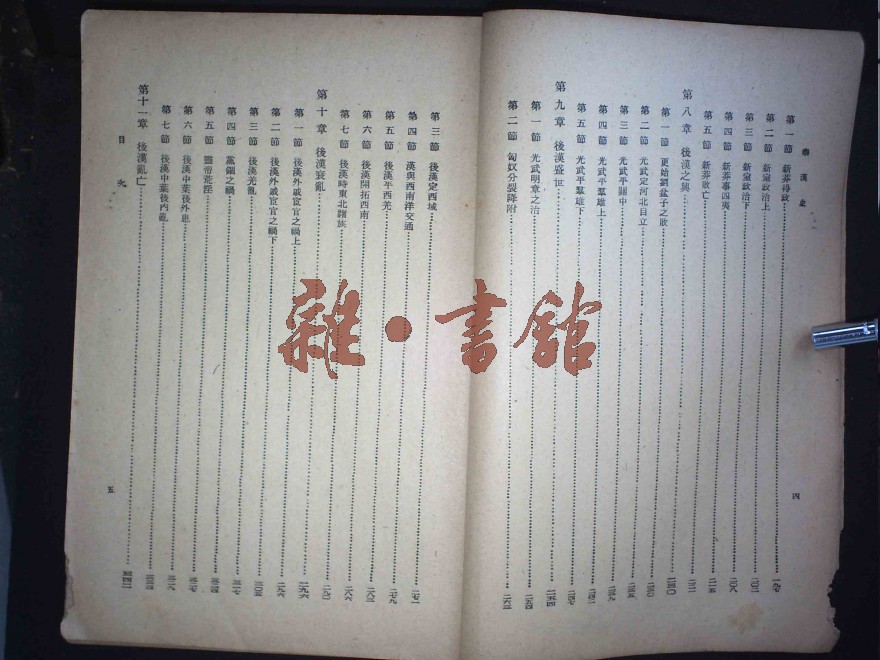 秦漢史
第一節 新莽得政 一九七
第二節 新室政治上 二〇二
第三節 新室政治下
第四節 新莽事四夷 二〇八
第五節 新莽敗亡 二一五
第八章 後漢之興
第一節 更始劉盆子之敗
第二節 光武定河北自立
第三節 光武平關中
第四節 光武平羣雄上
第五節 光武平羣雄下 二四七
第九章 後漢盛世 二五四
第一節 光武明章之治 二五四
第二節 匈奴分裂降附 二六三
四
第三節 後漢定西域 二七一
第四節 漢與西南洋交通
第五節 後漢平西羌 二七九
第六節 後漢開拓西南 二八三
第七節 後漢時東北諸族 二八六
第十章 後漢衰亂
第一節 後漢外戚宦官之禍上 二九六
第二節 後漢外戚宦官之禍下 二九六
第三節 後漢羌亂 三〇五
第四節 黨錮之禍
第五節 靈帝荒淫
第六節 後漢中葉後外患
第七節 後漢中葉後內亂
第十一章 後漢亂亡
目次
五
雜·書館